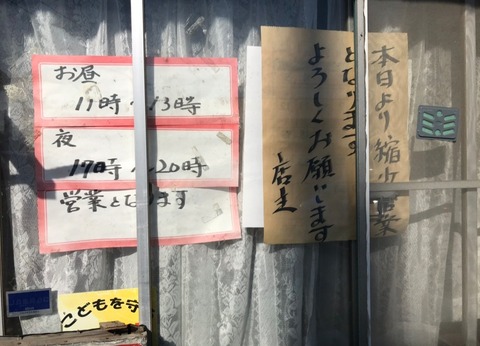 お昼
11時〜13時
夜
17時〜20時
営業となります
本日より縮小営業
となります
よろしくお願いします
店主
こどもを守